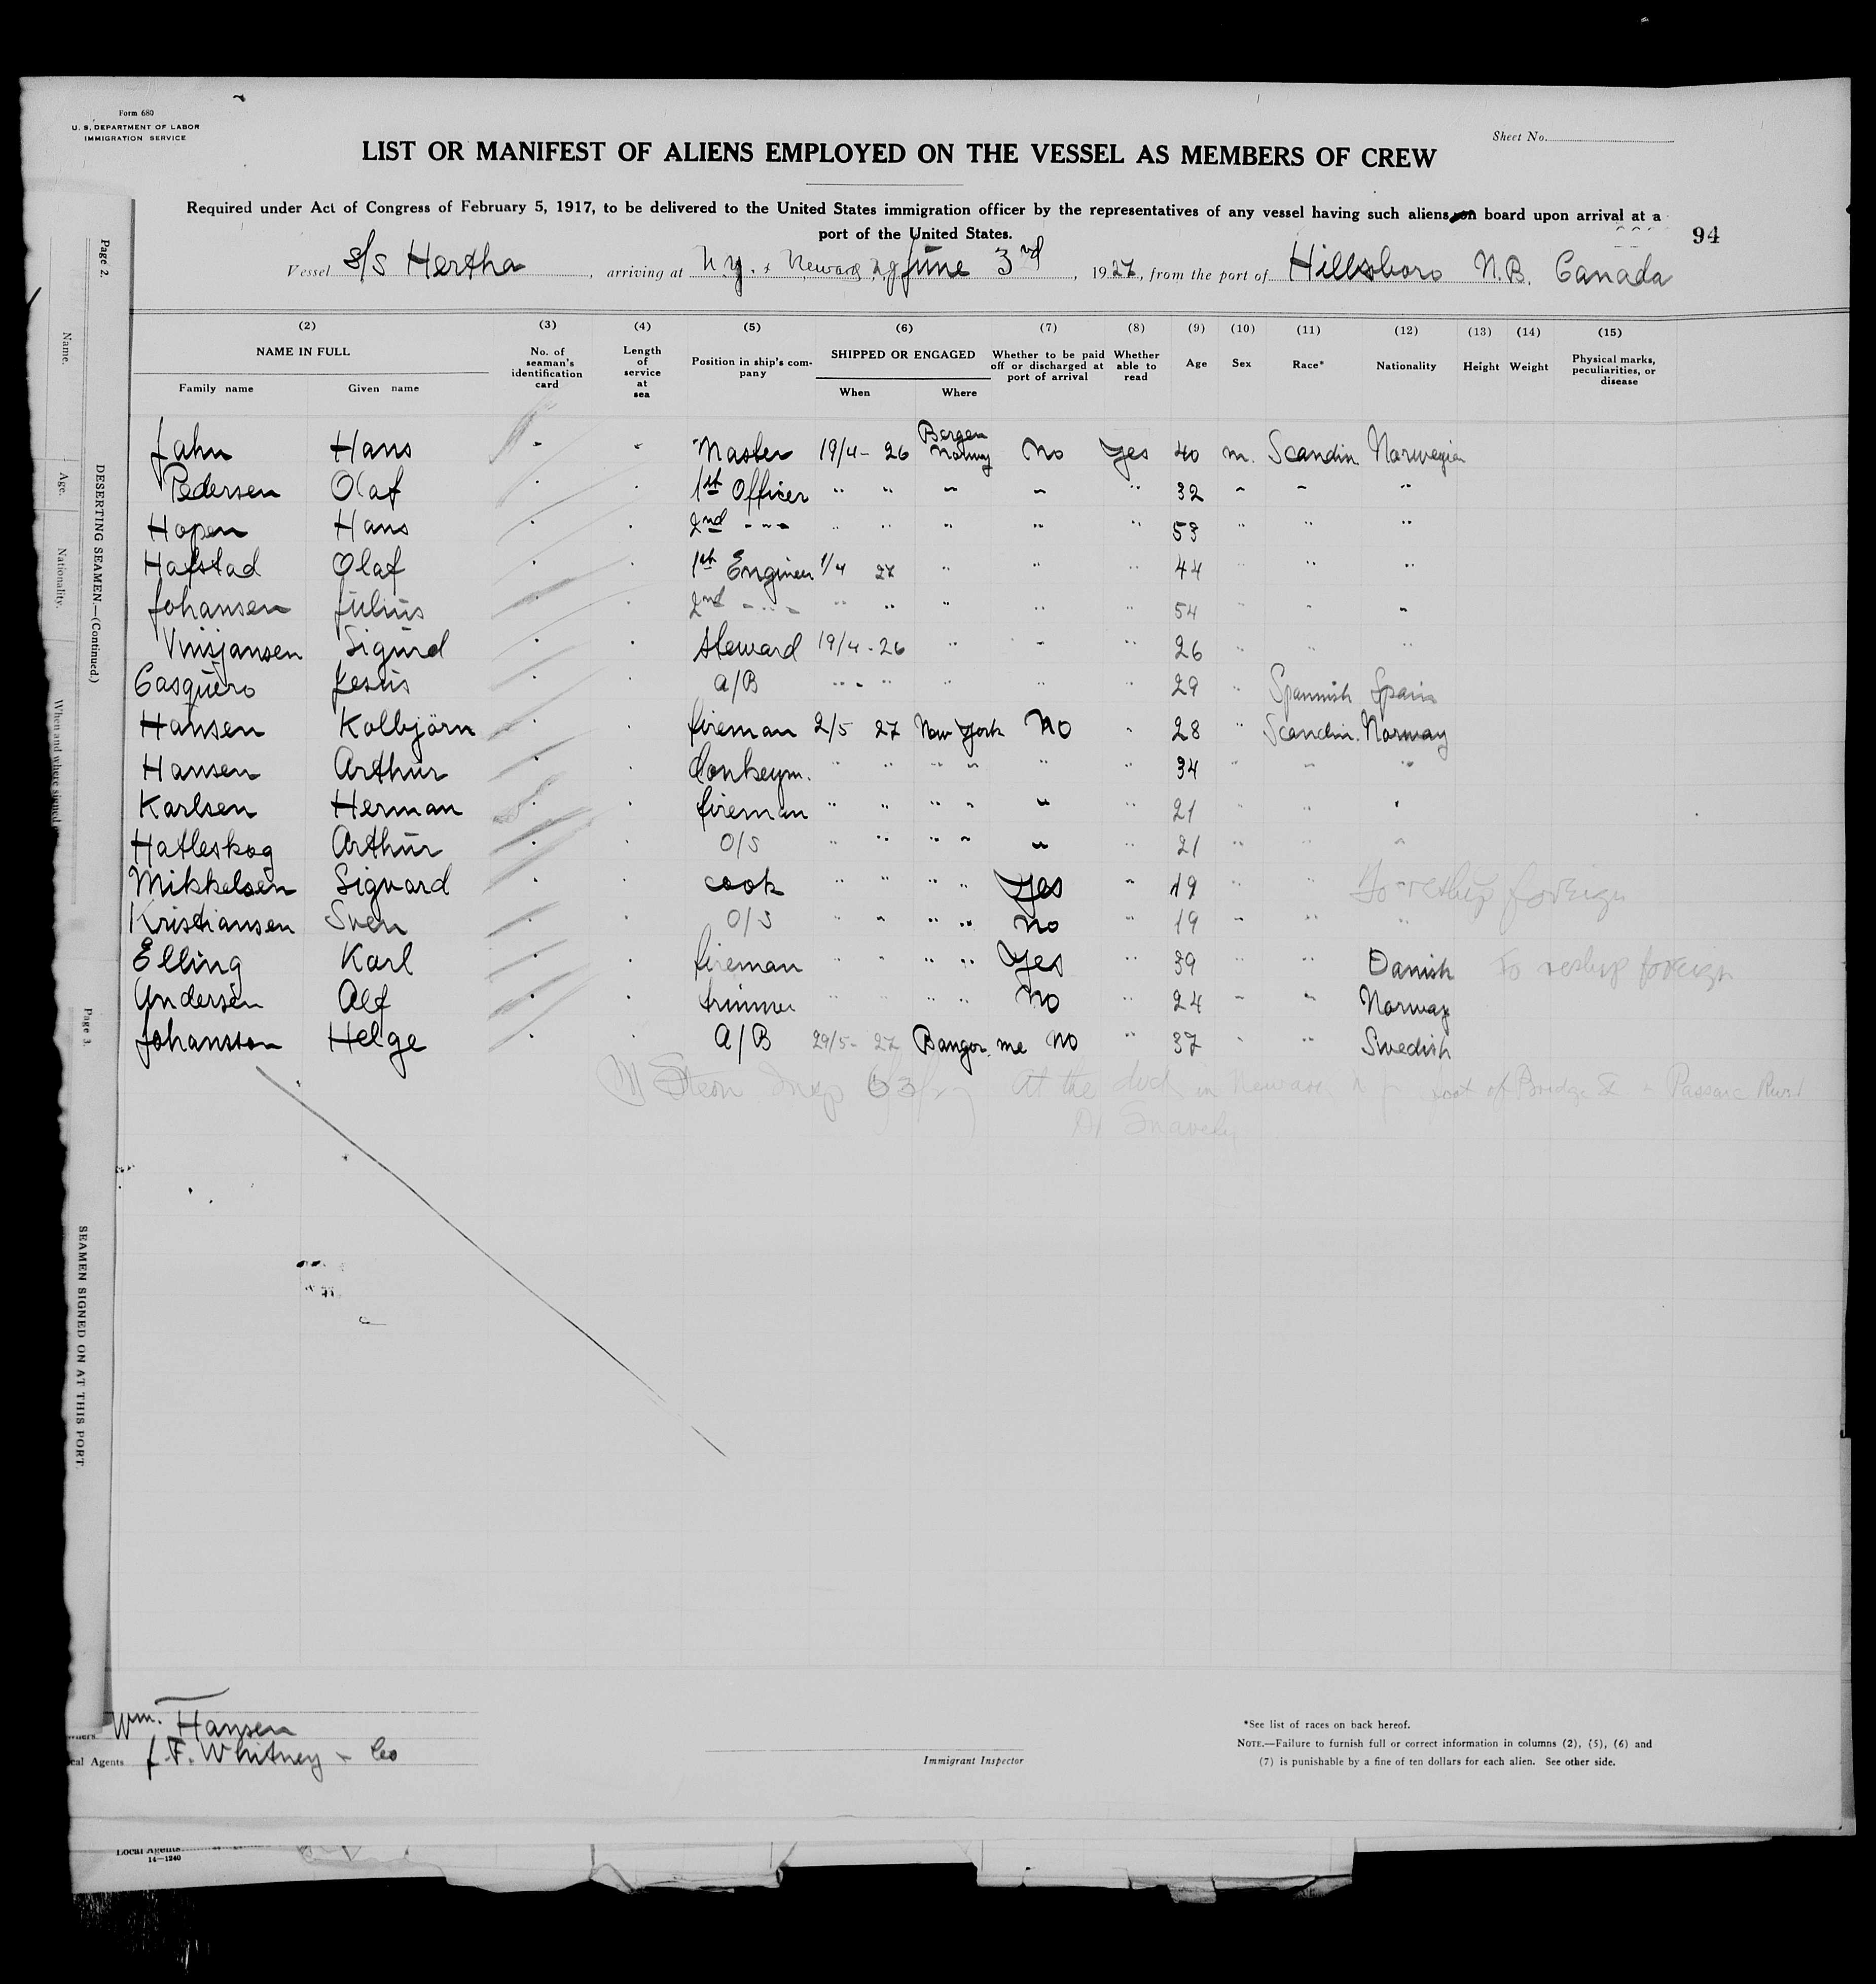 Form 680
U. S. DEPARTMENT OF LABOR
IMMIGRATION SERVICE
Sheet No.
LIST OR MANIFEST OF ALIENS EMPLOYED ON THE VESSEL AS MEMBERS OF CREW
Required under Act of Congress of February 5, 1917, to be delivered to the United States immigration officer by the representatives of any vessel having such aliens on board upon arrival at a
port of the United States.
94
Vessel S/S Hertha, arriving at N.Y. + Newark N.J. June 3rd, 1927, from the port of Hillsboro N.B. Canada
(2) (3) (4) (5) (6) (7) (8) (9) (10) (11) (12) (13) (14) (15)
NAME IN FULL
Family name Given name
No. of seaman's identification card
Length of service at sea
Position in ship's company
SHIPPED OR ENGAGED
When Where
Whether to be paid off or discharged at port of arrival
Whether able to read
Age
Sex
Race*
Nationality
Height
Weight
Physical marks, peculiarities, or disease
Jahn Hans - - Master 19/4 - 26 Bergen Norway No Yes 40 m. Scandin Norwegian
Pedersen Olaf " " 1st Officer " " " " " 32 " " "
Hopen Hans " " 2nd " " " " " " 53 " " "
Hafstad Olaf " " 1st Engineer 1/4 27 " " " 44 " " "
Johansen Julius " " 2nd " " " " " " 54 " " "
Sigurd " " Steward 19/4 - 26 " " " 26 " " "
Casquero Jesus " " A/B " " " " " 29 " Spannish Spain
Hansen Kolbjörn " " fireman 2/5 27 New York No " 28 " Scandin. Norway
Hansen Arthur " " Donkeym. " " " " " " 34 " " "
Karlsen Herman " " fireman " " " " " " 21 " " "
Hatleskog Arthur " " O/S " " " " " " 21 " " "
Mikkelsen Sigvard " " cook " " " " Yes " 19 " " To reship foreign
Kristiansen Sven " " O/S " " " " No " 19 " " "
Elling Karl " " fireman " " " " Yes " 39 " " Danish To reship foreign
Andersen Alf " " trimmer " " " " No " 24 " " Norway
Johansson Helge " " A/B 29/5 - 27 Bangor. me No " 37 " " Swedish
At the dock in Newark N J foot of Bridge St. Passaic River
Snavely
Page 2.
DESERTING SEAMEN.—(Continued.)
Name.
Age.
Nationality.
When and where signed
Page 3.
SEAMEN SIGNED ON AT THIS PORT.
Wm. Hansen
J. F. Whitney + Co
Immigrant Inspector
*See list of races on back hereof.
NOTE.—Failure to furnish full or correct information in columns (2), (5), (6) and
(7) is punishable by a fine of ten dollars for each alien. See other side.
Local Agents
14—1240